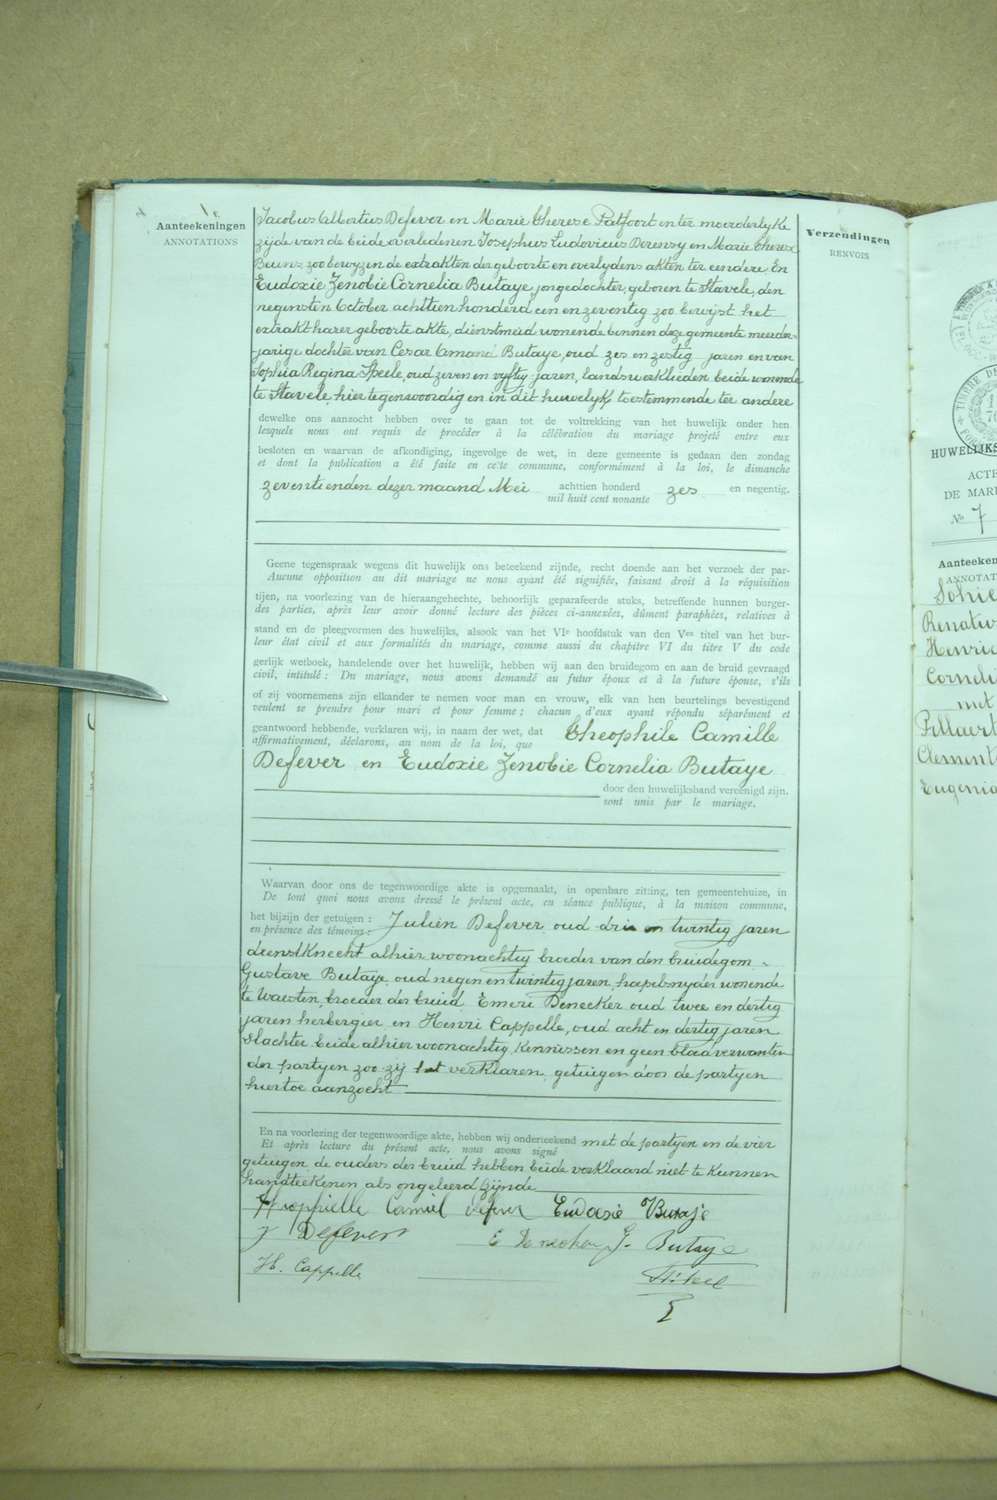 Aanteekeningen
ANNOTATIONS
Verzendingen
RENVOIS
Jacobus Albertus Defever en Marie Therese Patfoort en ter moederlyke
zijde van de beide overledenen Josephus Ludovicus Derensy en Marie Therese
Beuns, zoo bewyzen de extrakten der geboorte en overlydens akten ter eendere, En
Eudoxie Zenobie Cornelia Butaye, jongedochter, geboren te Stavele, den
negensten October achttien honderd een en zeventig zoo bewijst het
extrakt harer geboorte akte, dienstmeid wonende binnen deze gemeente meerder-
jarige dochter van Cesar Amand Butaye, oud zes en zestig jaren en van
Sophia Regina Steele, oud zeven en vyftig jaren, landswerklieden beide wonende
te Stavele, hier tegenwoordig en in dit huwelyk toestemmende ter andere
dewelke ons aanzocht hebben over te gaan tot de voltrekking van het huwelijk onder hen
lesquels nous ont requis de procéder à la célébration du mariage projeté entre eux
besloten en waarvan de afkondiging, ingevolge de wet, in deze gemeente is gedaan den zondag
et dont la publication a été faite en cette commune, conformément à la loi, le dimanche
zeventienden dezer maand Mei achttien honderd zes en negentig.
mil huit cent nonante
Geene tegenspraak wegens dit huwelijk ons beteekend zijnde, recht doende aan het verzoek der par-
Aucune opposition au dit mariage ne nous ayant été signifiée, faisant droit à la réquisition
tijen, na voorlezing van de hieraangehechte, behoorlijk geparafeerde stuks, betreffende hunnen burger-
des parties, après leur avoir donné lecture des pièces ci-annexées, dûment paraphées, relatives à
stand en de pleegvormen des huwelijks, alsook van het VIe hoofdstuk van den Ven titel van het bur-
leur état civil et aux formalités du mariage, comme aussi du chapitre VI du titre V du code
gerlijk wetboek, handelende over het huwelijk, hebben wij aan den bruidegom en aan de bruid gevraagd
civil, intitulé : Du mariage, nous avons demandé au futur époux et à la future épouse, s'ils
of zij voornemens zijn elkander te nemen voor man en vrouw, elk van hen beurtelings bevestigend
veulent se prendre pour mari et pour femme ; chacun d'eux ayant répondu séparément et
geantwoord hebbende, verklaren wij, in naam der wet, dat Theophile Camille
affirmativement, déclarons, au nom de la loi, que
Defever en Eudoxie Zenobie Cornelia Butaye
door den huwelijksband vereenigd zijn.
sont unis par le mariage.
Waarvan door ons de tegenwoordige akte is opgemaakt, in openbare zitting, ten gemeentehuize, in
De tout quoi nous avons dressé le présent acte, en séance publique, à la maison commune,
het bijzijn der getuigen : Julien Defever oud drie en twintig jaren
en présence des témoins :
dienstknecht alhier woonachtig broeder van den bruidegom
Gustave Butaye, oud negen en twintig jaren, wonende
te Watoten, broeder der bruid Emeri Denecker oud twee en dertig
jaren herbergier en Henri Cappelle, oud acht en dertig jaren
slachter beide alhier woonachtig, kennissen en geen bloedverwanten
der partyen zoo zij het verklaren, getuigen door de partyen
hiertoe aanzocht
En na voorlezing der tegenwoordige akte, hebben wij onderteekend met de partyen en de vier
Et après lecture du présent acte, nous avons signé
getuigen de ouders der bruid hebben beide verklaard niet te kunnen
handteekenen als ongeleerd zijnde
Theophielle Camiel defever Eudoxie Butaje
J Defever E Denecker G. Butaye
H. Cappelle
HUWELIJKS
ACTE
DE MARI
No 7
Aanteeken
ANNOTAT
Sohie
Renatus
Henric
Corneli
met
Pillaert
Clement
Eugenia